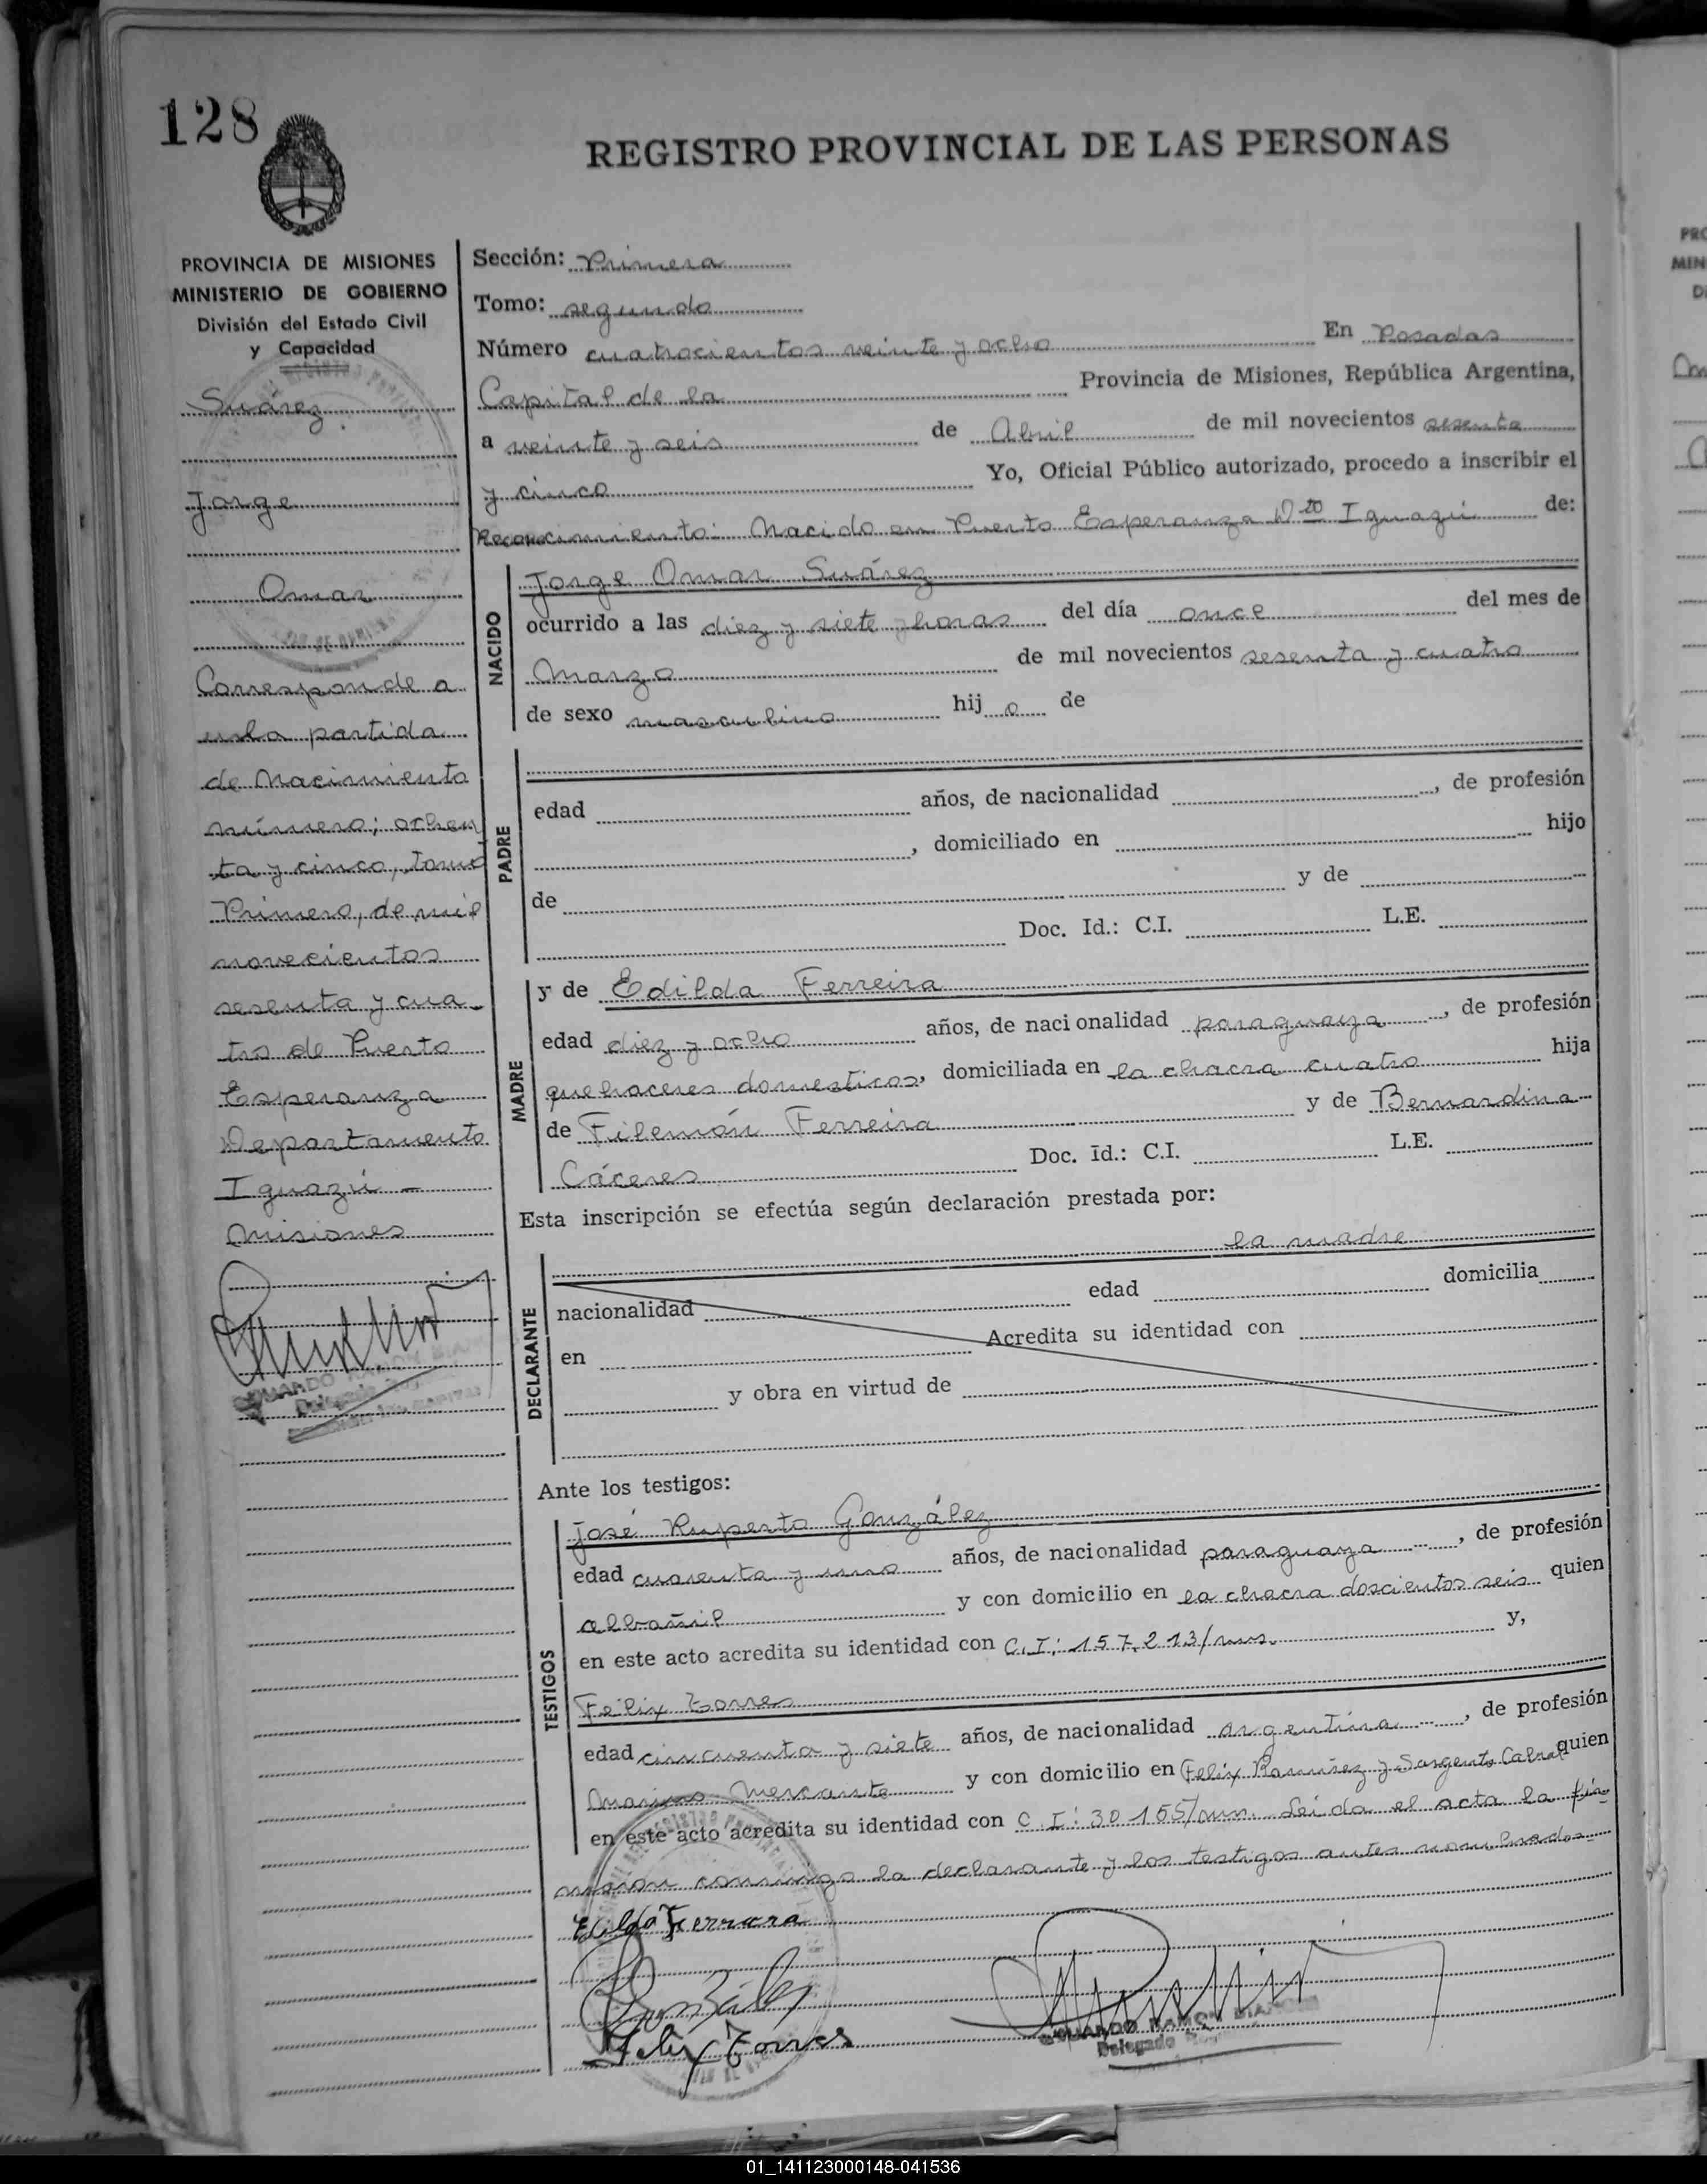 128
REGISTRO PROVINCIAL DE LAS PERSONAS
PROVINCIA DE MISIONES
MINISTERIO DE GOBIERNO
División del Estado Civil
y Capacidad
Suárez
Jorge
Omar
Corresponde a
esta partida
de Nacimiento
número; ochen
ta y cinco, tomo
Primero, de mil
novecientos
sesenta y cua-
tro de Puerto
Esperanza
Departamento
Iguazú -
Misiones
Sección: Primera
Tomo: segundo
Número cuatrocientos veinte y ocho En Posadas
Capital de la Provincia de Misiones, República Argentina,
a veinte y seis de Abril de mil novecientos sesenta
y cinco Yo, Oficial Público autorizado, procedo a inscribir el
Reconocimiento: Nacido en Puerto Esperanza Dto Iguazú de:
NACIDO
Jorge Omar Suárez
ocurrido a las diez y siete horas del día once del mes de
Marzo de mil novecientos sesenta y cuatro
de sexo masculino hijo de
PADRE
edad años, de nacionalidad , de profesión
, domiciliado en hijo
de y de
Doc. Id.: C.I. L.E.
MADRE
y de Edilda Ferreira
edad diez y ocho años, de nacionalidad paraguaya , de profesión
quehaceres domesticos, domiciliada en la chacra cuatro hija
de Filemón Ferreira y de Bernardina
Cáceres Doc. Id.: C.I. L.E.
Esta inscripción se efectúa según declaración prestada por:
la madre
DECLARANTE
nacionalidad edad domicilia
en Acredita su identidad con
y obra en virtud de
Ante los testigos:
TESTIGOS
José Ruperto González
edad cuarenta y uno años, de nacionalidad paraguaya , de profesión
albañil y con domicilio en la chacra doscientos seis quien
en este acto acredita su identidad con C.I: 157.213/mns. y,
Félix Torres
edad cincuenta y siete años, de nacionalidad argentina , de profesión
Marino Mercante y con domicilio en Felix Ramírez y Sargento Cabral quien
en este acto acredita su identidad con C.I: 30155/mn. Leida el acta la fir-
maron conmigo la declarante y los testigos antes nombrados
Edilda Ferrera
González
Felix Torres
EDUARDO RAMON
Delegado
01_141123000148-041536